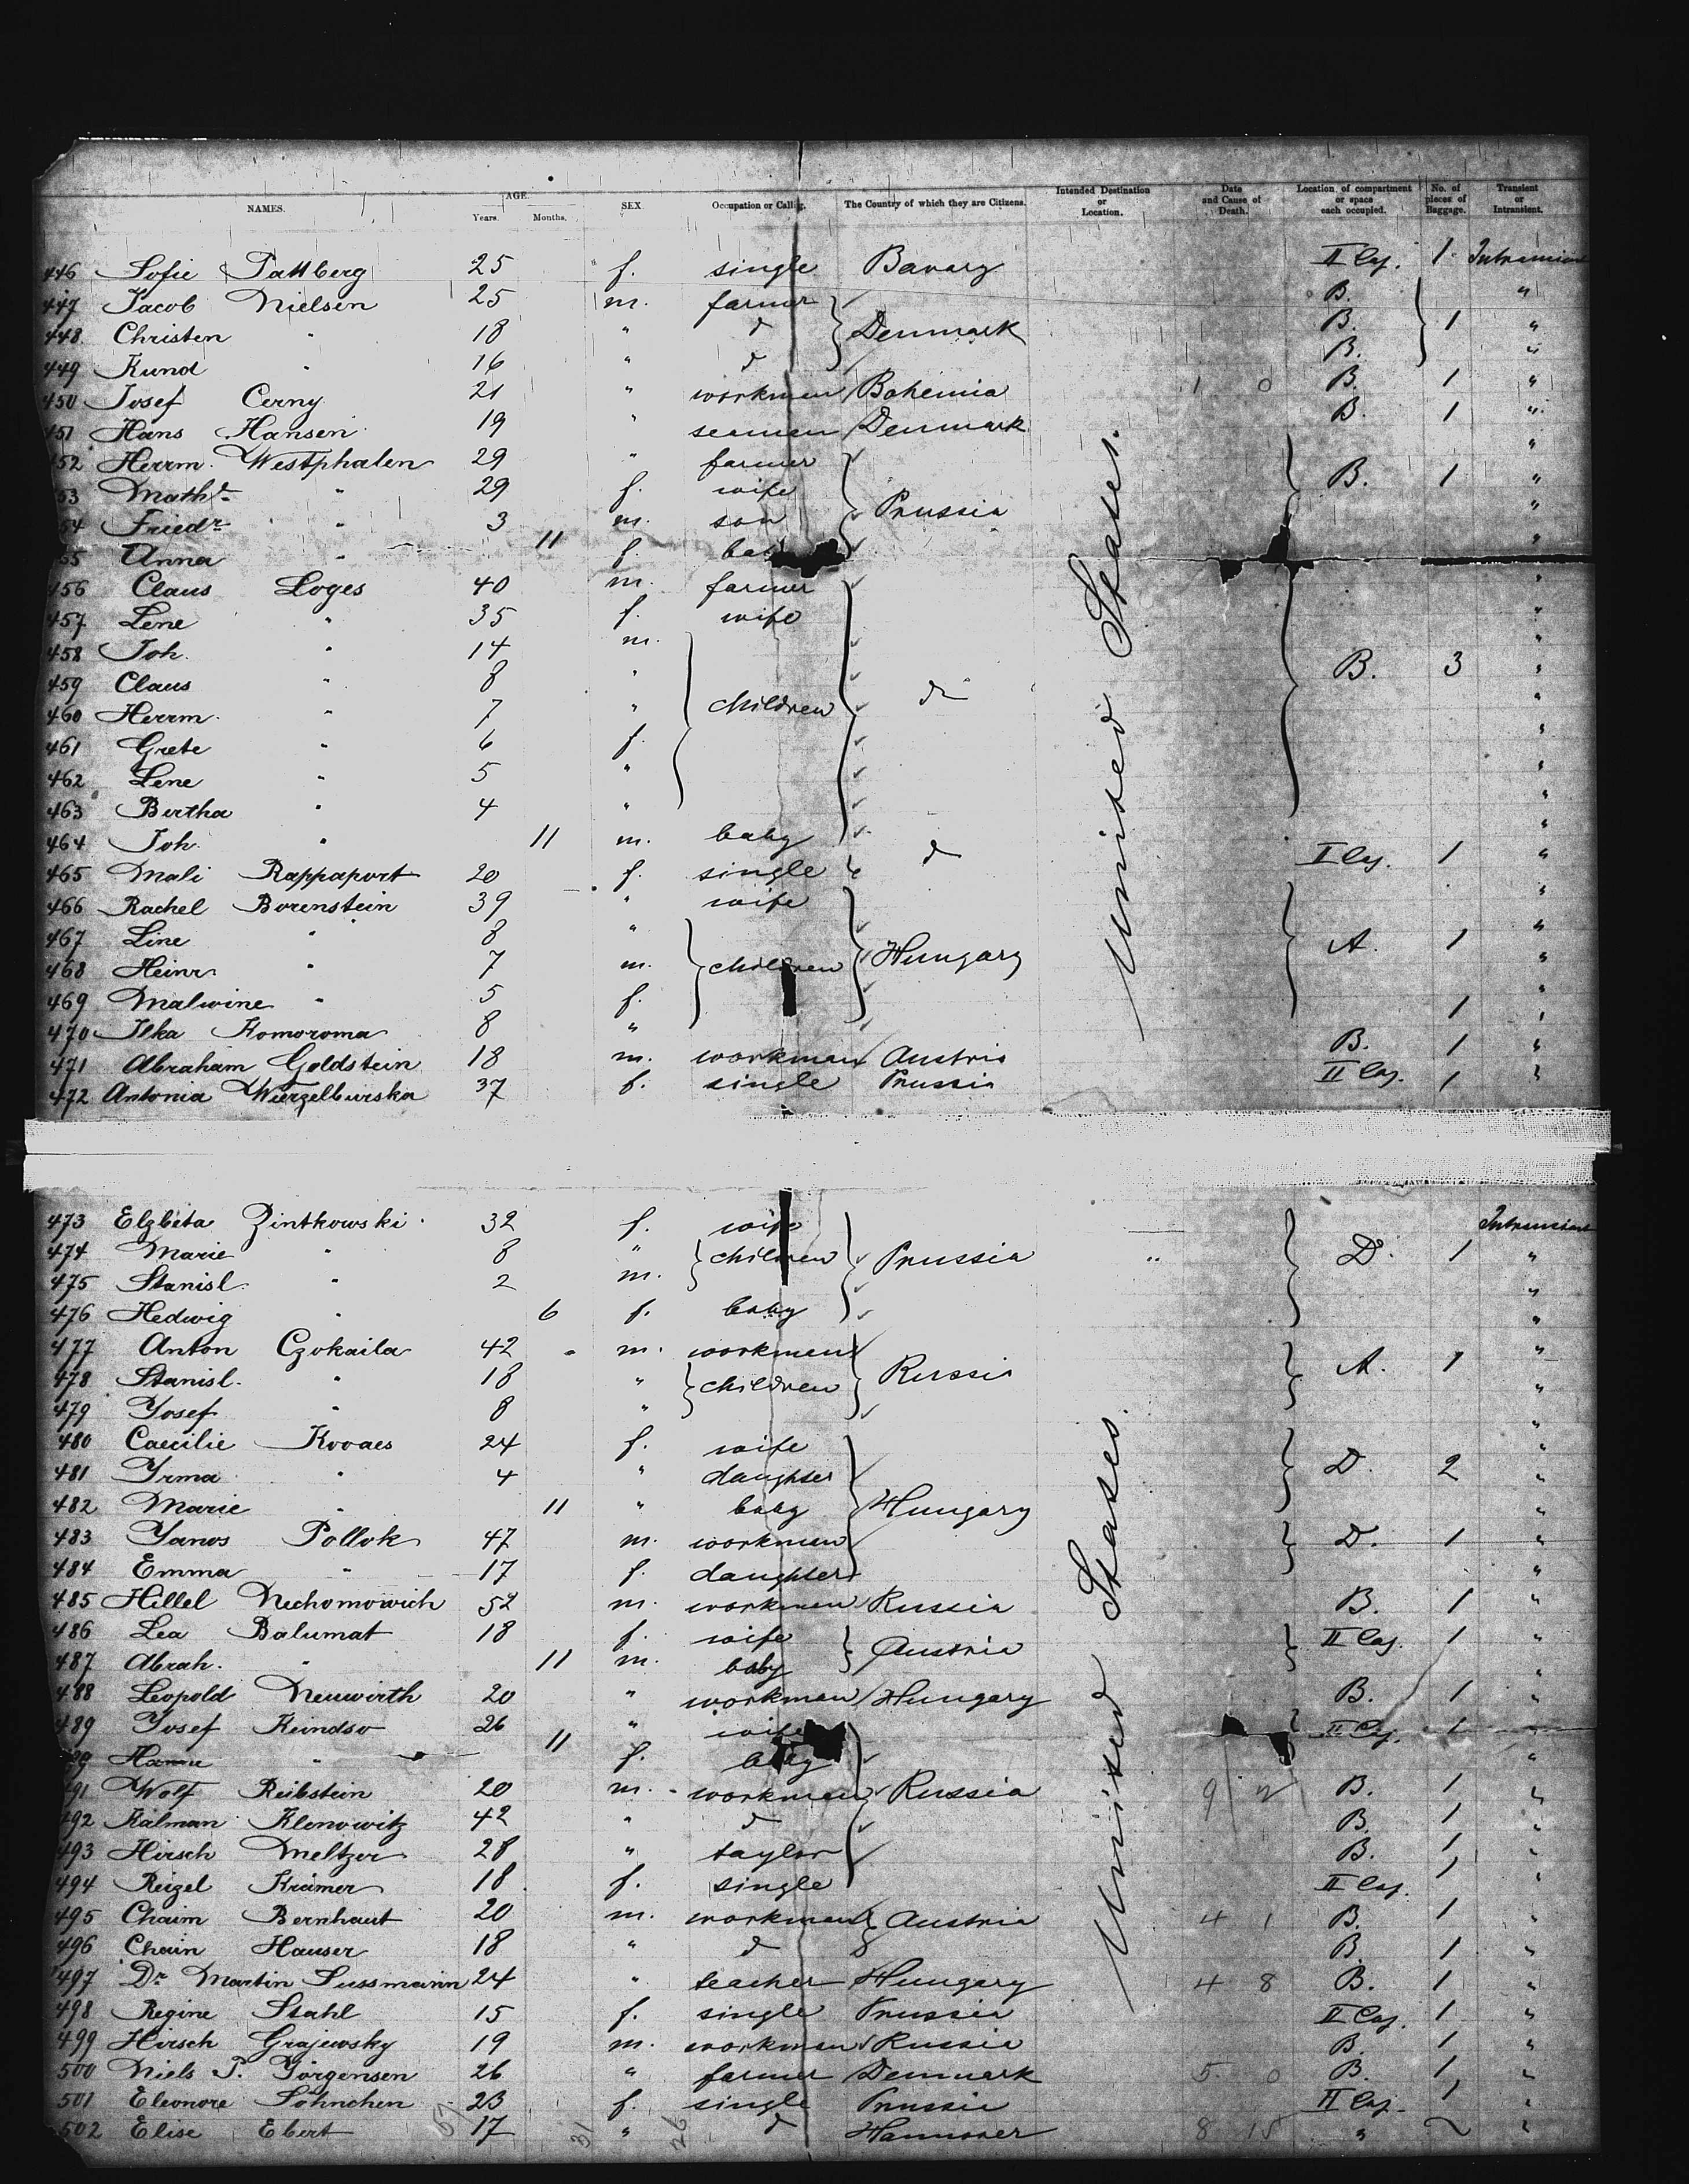 NAMES. AGE. Years. Months. SEX. Occupation or Calling. The Country of which they are Citizens. Intended Destination or Location. Date and Cause of Death. Location of compartment or space each occupied. No. of pieces of Baggage. Transient or Intransient.
446 Sofie Pattberg 25 f. single Bavary II Caj. 1 Intransient
447 Jacob Nielsen 25 m. farmer B. "
448 Christen " 18 " d Denmark B. 1 "
449 Kund " 16 " d B. "
450 Josef Cerny 21 " workman Bohemia 1 0 B. 1 "
451 Hans Hansen 19 " seaman Denmark B. 1 "
452 Herrm. Westphalen 29 " farmer "
53 Mathd " 29 f. wife B. 1 "
54 Friedr " 3 m. son Prussia "
55 Anna " 11 f. baby "
456 Claus Loges 40 m. farmer "
457 Lene " 35 f. wife "
458 Joh. " 14 m. "
459 Claus " 8 " B. 3 "
460 Herrm. " 7 " children d "
461 Grete " 6 f. "
462 Lene " 5 " "
463 Bertha " 4 " "
464 Joh. " 11 m. baby "
465 Mali Rappaport 20 f. single d I Caj. 1 "
466 Rachel Borenstein 39 " wife "
467 Line " 8 " "
468 Heinr. " 7 m. children Hungary A. 1 "
469 Malwine " 5 f. "
470 Ilka Komoroma 8 " 1 "
471 Abraham Goldstein 18 m. workman Austria B. 1 "
472 Antonia Wierzelburska 37 f. single Prussia II Caj. 1 "
United States.
473 Elzbeta Zintkowski 32 f. wife Intransient
474 Marie " 8 " children Prussia " D. 1 "
475 Stanisl. " 2 m. "
476 Hedwig " 6 f. baby "
477 Anton Czokaila 42 m. workman "
478 Stanisl. " 18 " children Russia A. 1 "
479 Yosef " 8 " "
480 Caecilie Kovacs 24 f. wife "
481 Yrma " 4 " daughter D. 2 "
482 Marie " 11 " baby Hungary "
483 Yanos Pollok 47 m. workman D. 1 "
484 Emma " 17 f. daughter "
485 Hillel Nechomowich 52 m. workman Russia B. 1 "
486 Lea Balumat 18 f. wife Austria II Caj. 1 "
487 Abrah. " 11 m. baby "
488 Leopold Neuwirth 20 " workman Hungary B. 1 "
489 Yosef Keindso 26 " wife II Caj. 1 "
" 11 f. baby "
491 Wolf Reibstein 20 m. workman Russia 9 2 B. 1 "
492 Kalman Klenowitz 42 " d B. 1 "
493 Hirsch Meltzer 28 " taylor B. 1 "
494 Reizel Krämer 18 f. single II Caj. 1 "
495 Chaim Bernhaut 20 m. workman Austria 4 1 B. 1 "
496 Chain Hauser 18 " d B. 1 "
497 Dr Martin Sussmann 24 " teacher Hungary 4 8 B. 1 "
498 Regine Stahl 15 f. single Prussia II Caj. 1 "
499 Hirsch Grajewsky 19 m. workman Russia B. 1 "
500 Niels P. Yörgensen 26 " farmer Denmark 5 0 B. 1 "
501 Eleonore Söhnchen 23 f. single Prussia II Caj. 1 "
502 Elise Ebert 17 " d Hannover 8 15 " "
United States
57 31 26